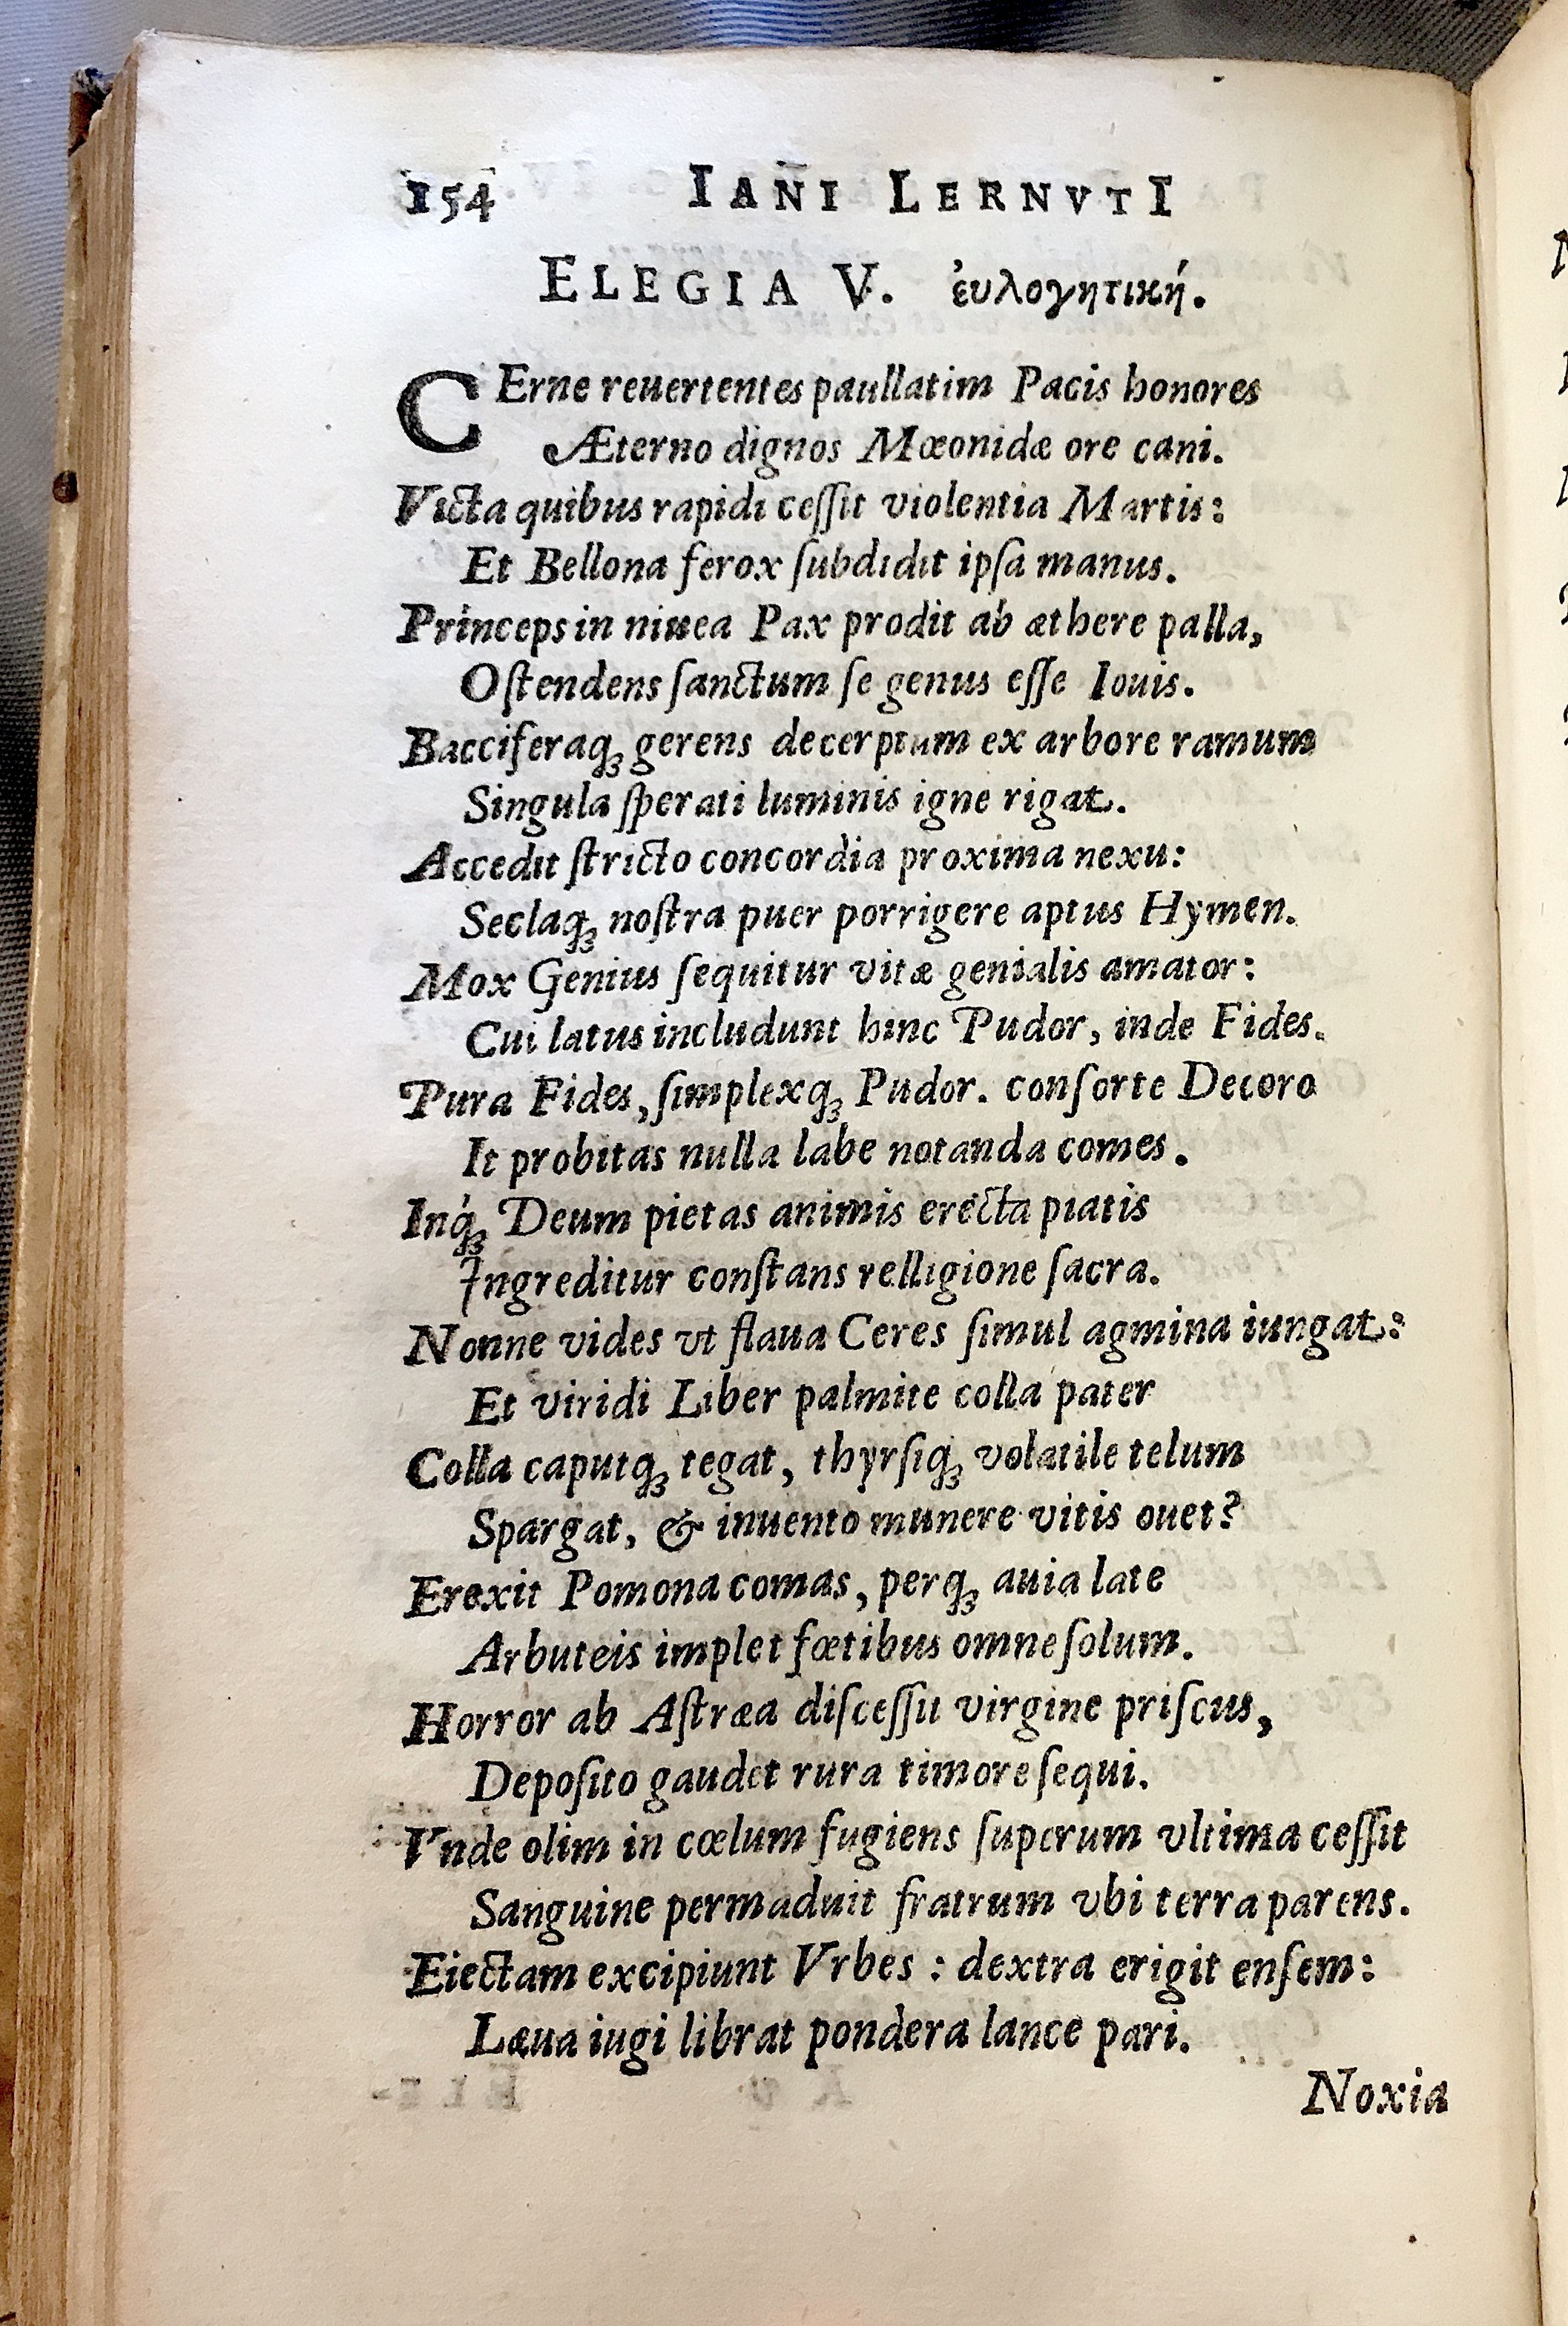 154 IANI LERNVTI
ELEGIA V. ἐυλογητική.
CErne reuertentes paullatim Pacis honores
Æterno dignos Mœonidæ ore cani.
Victa quibus rapidi ceſſit violentia Martis:
Et Bellona ferox ſubdidit ipſa manus.
Princeps in niuea Pax prodit ab æthere palla,
Oſtendens ſanctum ſe genus eſſe Iouis.
Bacciferaq́ꝫ gerens decerptum ex arbore ramum
Singula ſperati luminis igne rigat.
Accedit ſtricto concordia proxima nexu:
Seclaq́ꝫ noſtra puer porrigere aptus Hymen.
Mox Genius ſequitur vitæ genialis amator:
Cui latus includunt hinc Pudor, inde Fides.
Pura Fides, ſimplexq́ꝫ Pudor. conſorte Decoro
It probitas nulla labe notanda comes.
Inq́ꝫ Deum pietas animis erecta piatis
Ingreditur conſtans relligione ſacra.
Nonne vides vt flaua Ceres ſimul agmina iungat:
Et viridi Liber palmite colla pater
Colla caputq́ꝫ tegat, thyrſiq́ꝫ volatile telum
Spargat, & inuento munere vitis ouet?
Erexit Pomona comas, perq́ꝫ auia late
Arbuteis implet fœtibus omne ſolum.
Horror ab Aſtræa diſceſſit virgine priſcus,
Depoſito gaudet rura timore ſequi.
Vnde olim in cœlum fugiens ſuperum vltima ceſſit
Sanguine permaduit fratrum vbi terra parens.
Eiectam excipiunt Vrbes : dextra erigit enſem:
Læua iugi librat pondera lance pari.
Noxia